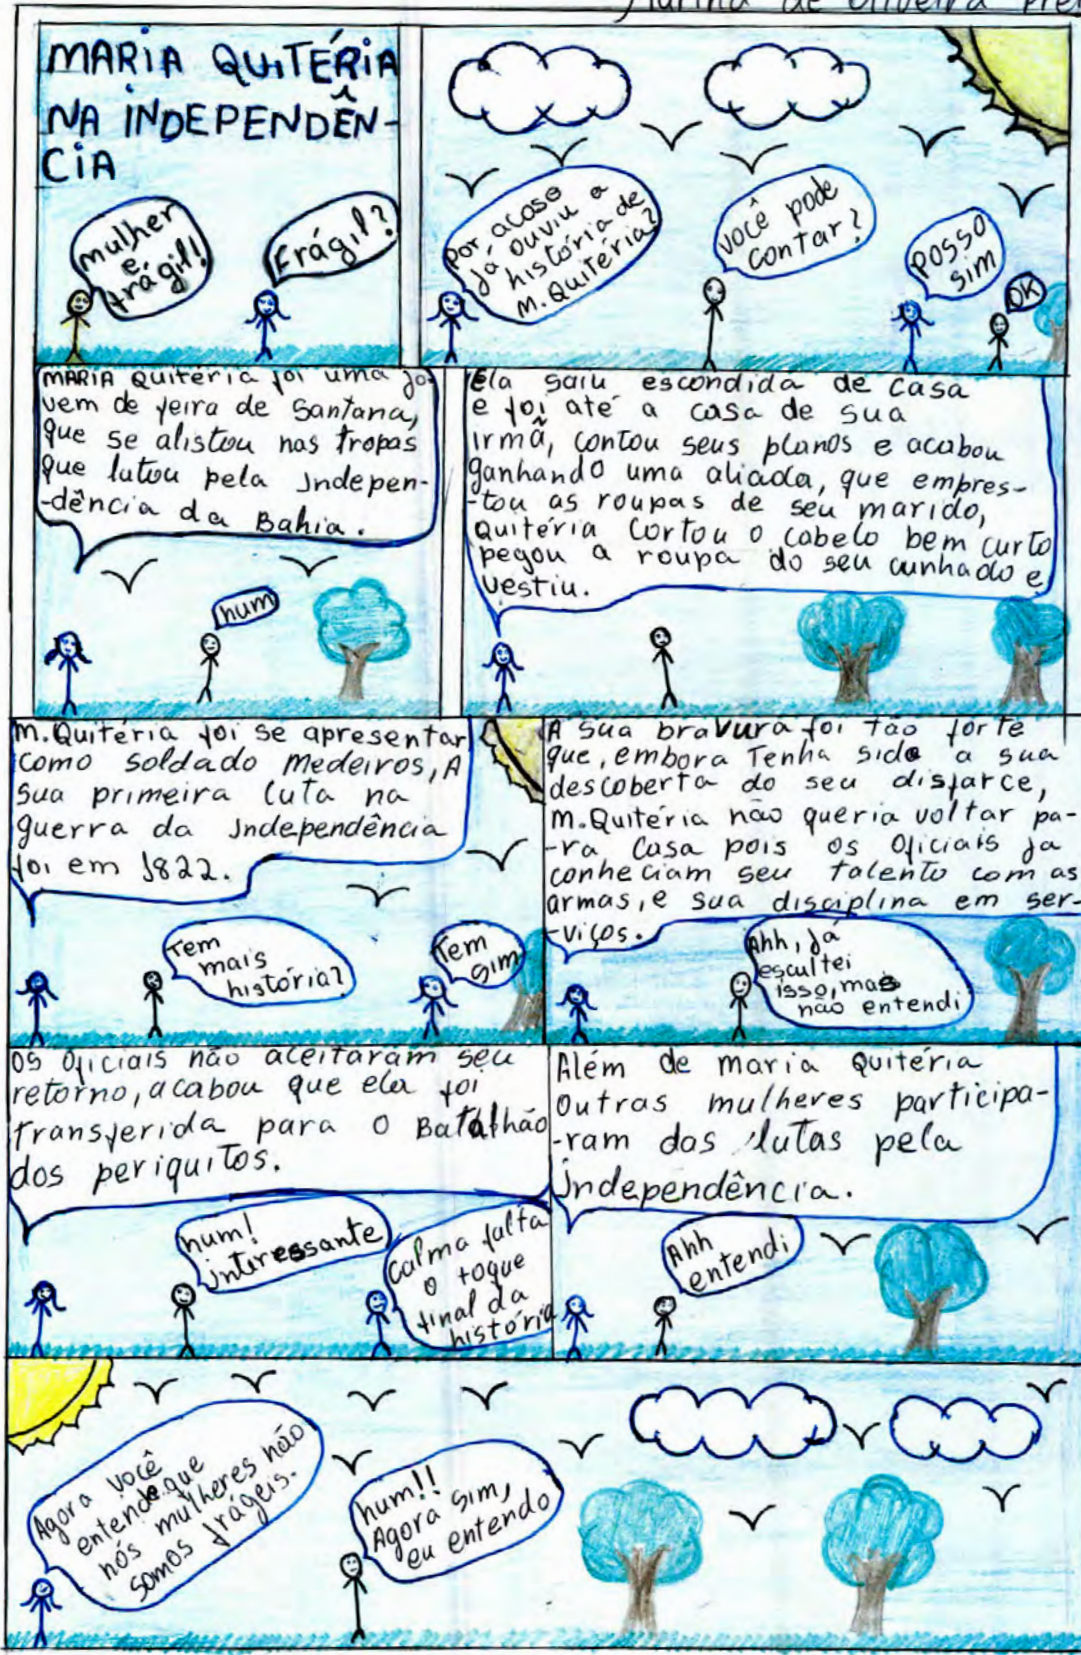 de Oliveira
MARIA QUITÉRIA
NA INDEPENDÊN-
CIA
mulher
e
frágil!!
Frágil?
Por acaso
já ouviu a
história de
M. Quitéria?
você pode
contar?
posso
sim
OK
MARIA Quitéria foi uma jo
vem de feira de Santana,
que se alistou nas tropas
que lutou pela Indepen-
-dência da Bahia.
hum
Ela saiu escondida de casa
e foi até a casa de sua
irmã, contou seus planos e acabou
ganhando uma aliada, que empres-
-tou as roupas de seu marido,
Quitéria cortou o cabelo bem curto
pegou a roupa do seu cunhado e
vestiu.
M. Quitéria foi se apresentar
como soldado Medeiros, A
sua primeira luta na
guerra da Independência
foi em 1822.
Tem
mais
história?
Tem
sim
A sua bravura foi tão forte
que, embora Tenha sido a sua
descoberta do seu disfarce,
M. Quitéria não queria voltar pa-
-ra casa pois os Oficiais ja
conheciam seu talento com as
armas, e sua disciplina em ser-
-viços.
Ahh, já
escultei
isso, mas
não entendi
Os Oficiais não aceitaram seu
retorno, acabou que ela foi
transferida para o Batalhão
dos periquitos.
hum!
interessante
calma falta
o toque
final da
história
Além de maria Quitéria
Outras mulheres participa-
-ram das lutas pela
independência.
Ahh
entendi
Agora você
entende que
nós mulheres não
somos frágeis.
hum!!
Agora sim,
eu entendo